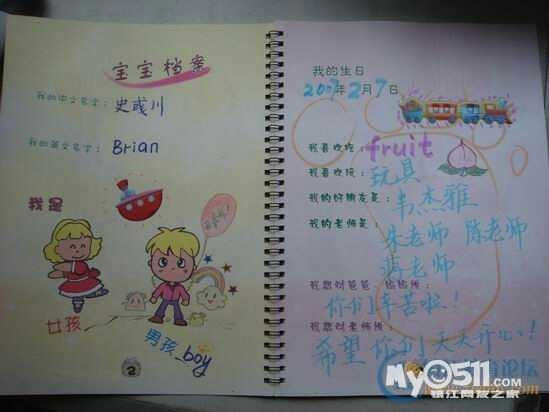 宝宝档案
我的中文名字：史彧川
我的英文名字：Brian
我是
女孩
男孩_boy
2
我的生日
2007年2月7日
我喜欢吃：fruit
我喜欢玩：玩具
我的好朋友是：韦杰雅
我的老师是：朱老师 陈老师
蒋老师
我想对爸爸、妈妈说：
你们辛苦啦！
我想对老师说：
希望你们天天开心！
论坛
my0511.com
镇江网友之家